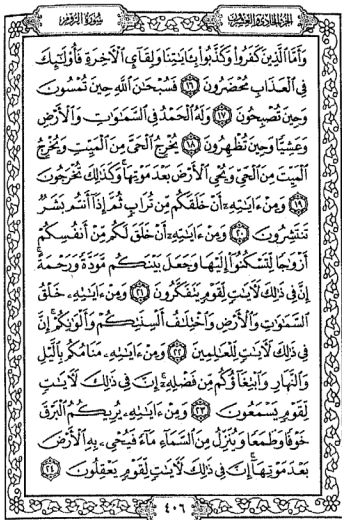 الجزء الحادي والعشرون
سورة الروم
وَأَمَّا الَّذِينَ كَفَرُوا وَكَذَّبُوا بِـَٔايَـٰتِنَا وَلِقَآيِٕ الْـَٔاخِرَةِ فَأُولَـٰٓئِكَ
فِي الْعَذَابِ مُحْضَرُونَ ١٦ فَسُبْحَـٰنَ اللَّهِ حِينَ تُمْسُونَ
وَحِينَ تُصْبِحُونَ ١٧ وَلَهُ الْحَمْدُ فِي السَّمَـٰوَٰتِ وَالْأَرْضِ
وَعَشِيًّا وَحِينَ تُظْهِرُونَ ١٨ يُخْرِجُ الْحَيَّ مِنَ الْمَيِّتِ وَيُخْرِجُ
الْمَيِّتَ مِنَ الْحَيِّ وَيُحْيِ الْأَرْضَ بَعْدَ مَوْتِهَا ۚ وَكَذَٰلِكَ تُخْرَجُونَ
١٩ وَمِنْ ءَايَـٰتِهِۦٓ أَنْ خَلَقَكُم مِّن تُرَابٍ ثُمَّ إِذَآ أَنتُم بَشَرٌ
تَنتَشِرُونَ ٢٠ وَمِنْ ءَايَـٰتِهِۦٓ أَنْ خَلَقَ لَكُم مِّنْ أَنفُسِكُمْ
أَزْوَٰجًا لِّتَسْكُنُوٓا إِلَيْهَا وَجَعَلَ بَيْنَكُم مَّوَدَّةً وَرَحْمَةً ۚ
إِنَّ فِي ذَٰلِكَ لَـَٔايَـٰتٍ لِّقَوْمٍ يَتَفَكَّرُونَ ٢١ وَمِنْ ءَايَـٰتِهِۦ خَلْقُ
السَّمَـٰوَٰتِ وَالْأَرْضِ وَاخْتِلَـٰفُ أَلْسِنَتِكُمْ وَأَلْوَٰنِكُمْ ۚ إِنَّ
فِي ذَٰلِكَ لَـَٔايَـٰتٍ لِّلْعَـٰلِمِينَ ٢٢ وَمِنْ ءَايَـٰتِهِۦ مَنَامُكُم بِالَّيْلِ
وَالنَّهَارِ وَابْتِغَآؤُكُم مِّن فَضْلِهِۦٓ ۚ إِنَّ فِي ذَٰلِكَ لَـَٔايَـٰتٍ
لِّقَوْمٍ يَسْمَعُونَ ٢٣ وَمِنْ ءَايَـٰتِهِۦ يُرِيكُمُ الْبَرْقَ
خَوْفًا وَطَمَعًا وَيُنَزِّلُ مِنَ السَّمَآءِ مَآءً فَيُحْيِۦ بِهِ الْأَرْضَ
بَعْدَ مَوْتِهَآ ۚ إِنَّ فِي ذَٰلِكَ لَـَٔايَـٰتٍ لِّقَوْمٍ يَعْقِلُونَ ٢٤
٤٠٦